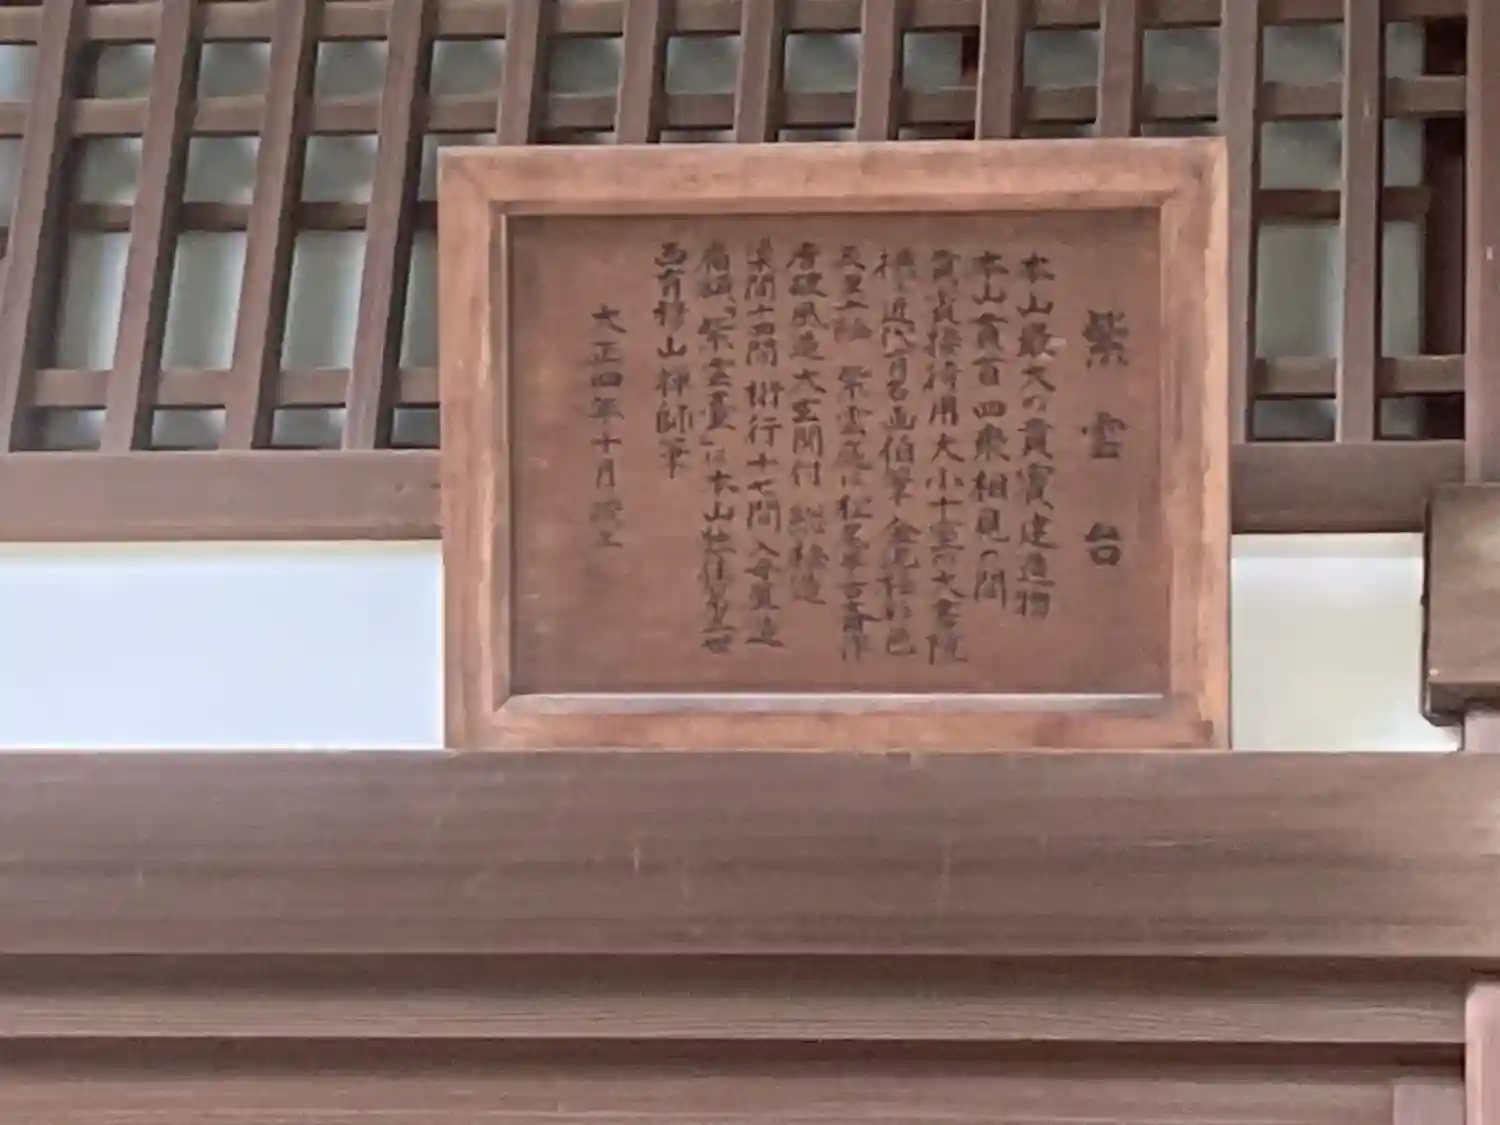 紫雲台
本山最大の貴賓建造物
本山貫首四衆相見の間
貴賓接待用大小十室の大書院
襖は近代有名画伯筆 金泥極彩色
唐破風造大玄関付 総檜造
梁間十四間 桁行十七間 入母屋造
扁額「紫雲臺」は本山独住第三世
西有穆山禅師筆
大正四年十月 竣工